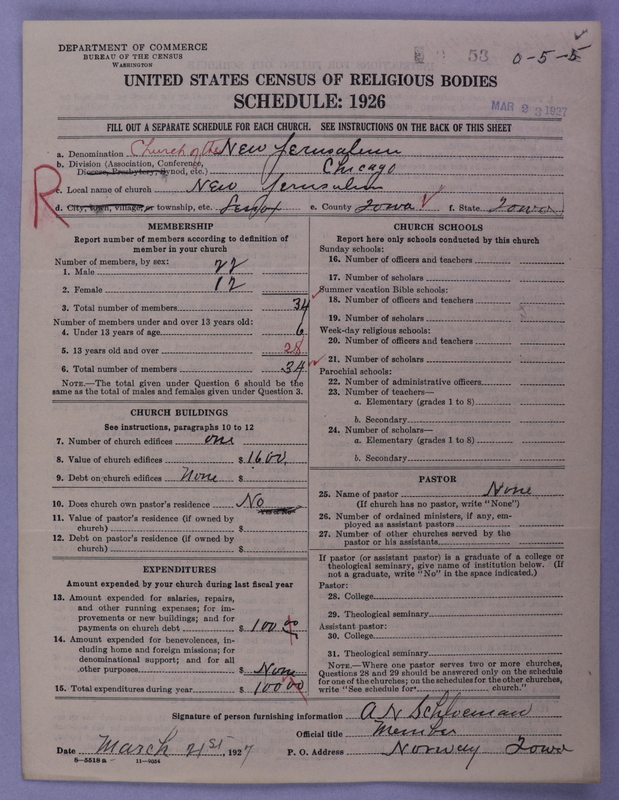 DEPARTMENT OF COMMERCE
BUREAU OF THE CENSUS
WASHINGTON
53 0-5-5
UNITED STATES CENSUS OF RELIGIOUS BODIES
SCHEDULE: 1926
MAR 2 8 1927
FILL OUT A SEPARATE SCHEDULE FOR EACH CHURCH. SEE INSTRUCTIONS ON THE BACK OF THIS SHEET
a. Denomination Church of the New Jerusalum
b. Division (Association, Conference, Diocese, Presbytery, Synod, etc.) Chicago
c. Local name of church New Jerusalum
R
d. City, town, village, or township, etc. Lenox e. County Iowa f. State Iowa
MEMBERSHIP
Report number of members according to definition of
member in your church
Number of members, by sex:
1. Male 22
2. Female 12
3. Total number of members 34
Number of members under and over 13 years old:
4. Under 13 years of age 6
5. 13 years old and over 28
6. Total number of members 34
NOTE.—The total given under Question 6 should be
same as the total of males and females given under Question 3.
CHURCH BUILDINGS
See instructions, paragraphs 10 to 12
7. Number of church edifices one
8. Value of church edifices $ 1600.
9. Debt on church edifices None $
10. Does church own pastor's residence No
11. Value of pastor's residence (if owned by
church) $
12. Debt on pastor's residence (if owned by
church) $
EXPENDITURES
Amount expended by your church during last fiscal year
13. Amount expended for salaries, repairs,
and other running expenses; for im-
provements or new buildings; and for
payments on church debt $ 100.
14. Amount expended for benevolences, in-
cluding home and foreign missions; for
denominational support; and for all
other purposes $ None
15. Total expenditures during year $ 100 00
CHURCH SCHOOLS
Report here only schools conducted by this church
Sunday schools:
16. Number of officers and teachers
17. Number of scholars
Summer vacation Bible schools:
18. Number of officers and teachers
19. Number of scholars
Week-day religious schools:
20. Number of officers and teachers
21. Number of scholars
Parochial schools:
22. Number of administrative officers
23. Number of teachers—
a. Elementary (grades 1 to 8)
b. Secondary
24. Number of scholars—
a. Elementary (grades 1 to 8)
b. Secondary
PASTOR
25. Name of pastor None
(If church has no pastor, write "None")
26. Number of ordained ministers, if any, em-
ployed as assistant pastors
27. Number of other churches served by the
pastor or his assistants
If pastor (or assistant pastor) is a graduate of a college or
theological seminary, give name of institution below. (If
not a graduate, write "No" in the space indicated.)
Pastor:
28. College
29. Theological seminary
Assistant pastor:
30. College
31. Theological seminary
NOTE.—Where one pastor serves two or more churches,
Questions 28 and 29 should be answered only on the schedule
for one of the churches; on the schedules for the other churches,
write "See schedule for church."
Signature of person furnishing information A N Schloeman
Official title Member
Date March 21st, 1927 P. O. Address Norway Iowa
8—5518 a 11—9034